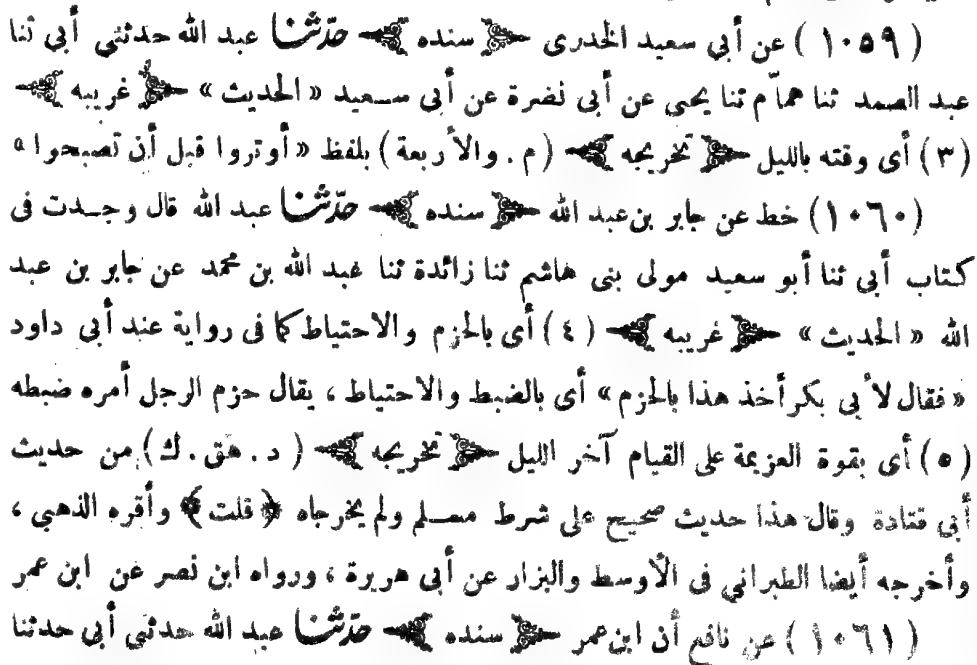 (١٠٥٩) عن أبي سعيد الخدرى ﴿ سنده ﴾ حدّثنا عبد الله حدثني أبي ثنا
عبد الصمد ثنا همّام ثنا يحيى عن أبى نضرة عن أبى سعيد « الحديث » ﴿ غريبه ﴾
(٣) أى وقته بالليل ﴿ تخريجه ﴾ (م . والأربعة) بلفظ « أوتروا قبل أن تصبحوا »
(١٠٦٠) خط عن جابر بن عبد الله ﴿ سنده ﴾ حدّثنا عبد الله قال وجدت فى
كتاب أبي ثنا أبو سعيد مولى بنى هاشم ثنا زائدة ثنا عبد الله بن محمد عن جابر بن عبد
الله « الحديث » ﴿ غريبه ﴾ (٤) أى بالحزم والاحتياط كما فى رواية عند أبي داود
« فقال لأبى بكر أخذ هذا بالحزم » أى بالضبط والاحتياط ، يقال حزم الرجل أمره ضبطه
(٥) أى بقوة العزيمة على القيام آخر الليل ﴿ تخريجه ﴾ (د . هق . ك) من حديث
أبى قتادة وقال هذا حديث صحيح على شرط مسلم ولم يخرجاه ﴿ قلت ﴾ وأقره الذهبي ،
وأخرجه أيضا الطبراني فى الأوسط والبزار عن أبى هريرة ، ورواه ابن نصر عن ابن عمر
(١٠٦١) عن نافع أن ابن عمر ﴿ سنده ﴾ حدّثنا عبد الله حدثنى أبى حدثنا